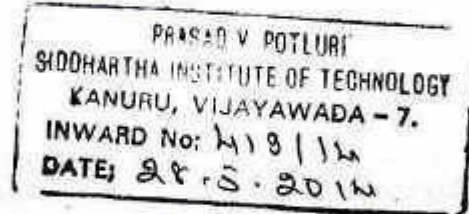 PRASAD V POTLURI
SIDDHARTHA INSTITUTE OF TECHNOLOGY
KANURU, VIJAYAWADA - 7.
INWARD No:
DATE; 28.5.2014